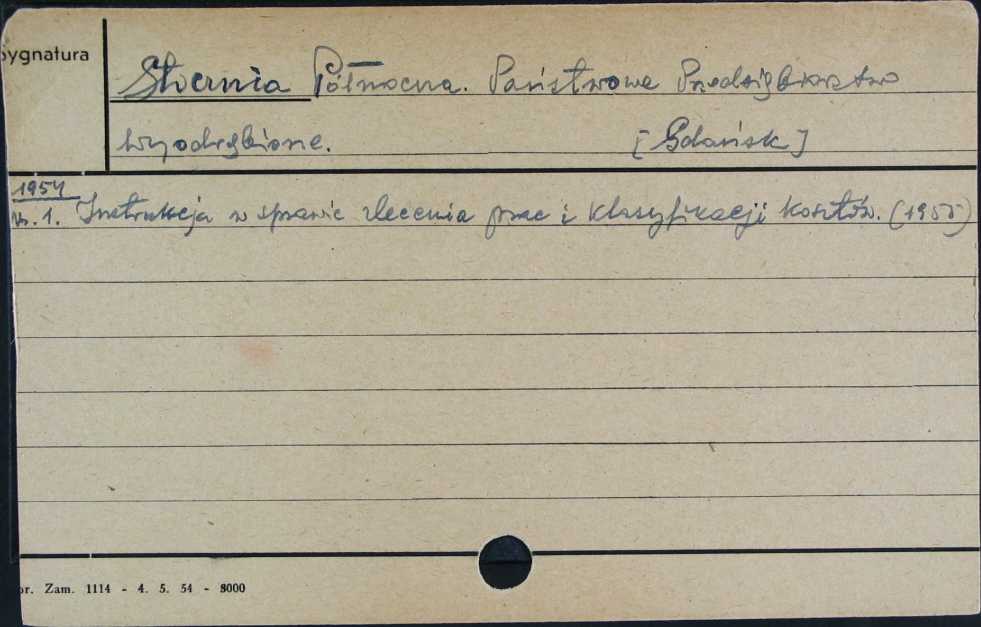 Sygnatura
Stocznia Północna. Państwowe Przedsiębiorstwo
Wyodrębnione. [Gdańsk]
1954
Nr. 1. Instrukcja w sprawie zlecenia prac i klasyfikacji kosztów. (1955)
or. Zam. 1114 - 4. 5. 54 - 8000